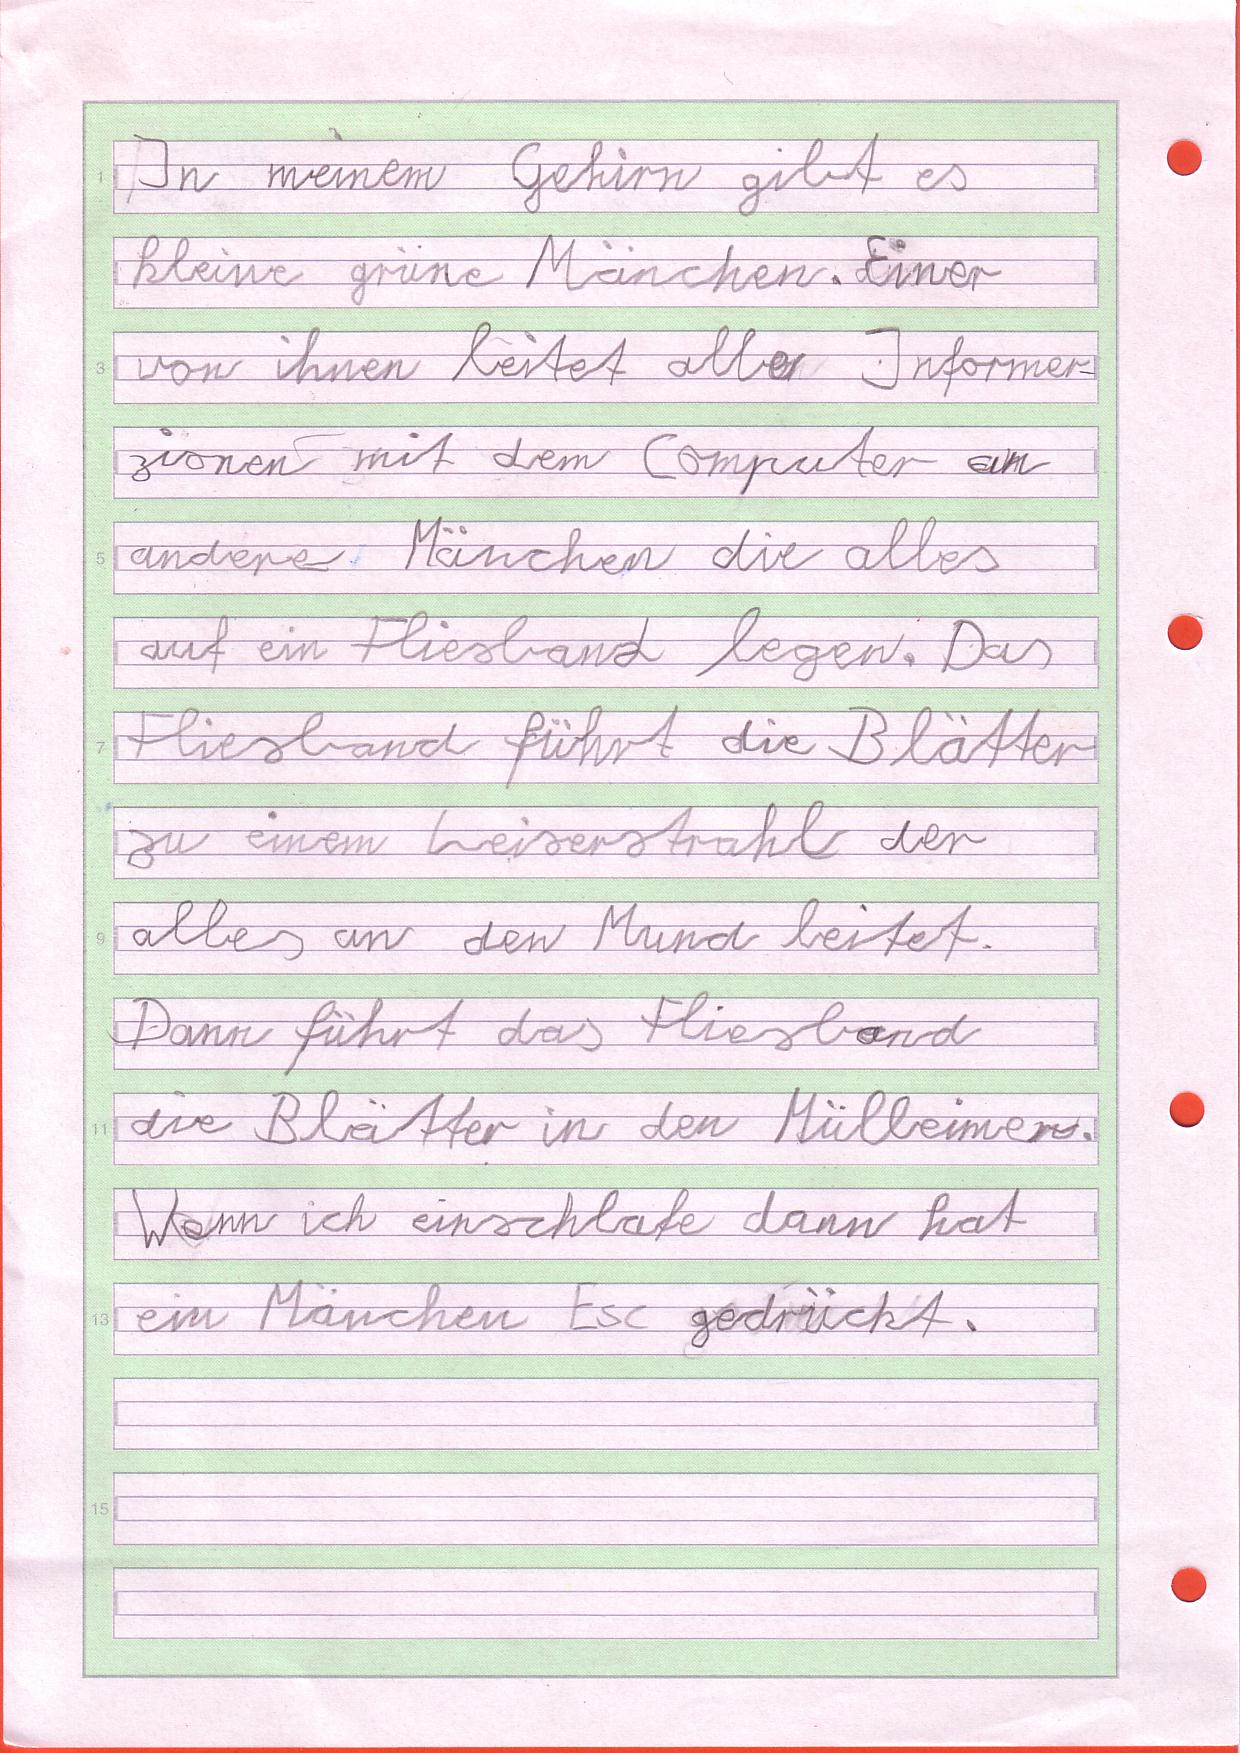 In meinem Gehirn gibt es
kleine grüne Mänchen. Einer
von ihnen leitet alle Informer-
zionen mit dem Computer an
andere Mänchen die alles
auf ein Fliesband legen. Das
Fliesband führt die Blätter
zu einem Leiserstrahl der
alles an den Mund leitet.
Dann führt das Fliesband
die Blätter in den Mülleimer.
Wenn ich einschlafe dann hat
ein Mänchen Esc gedrückt.
1
3
5
7
9
11
13
15